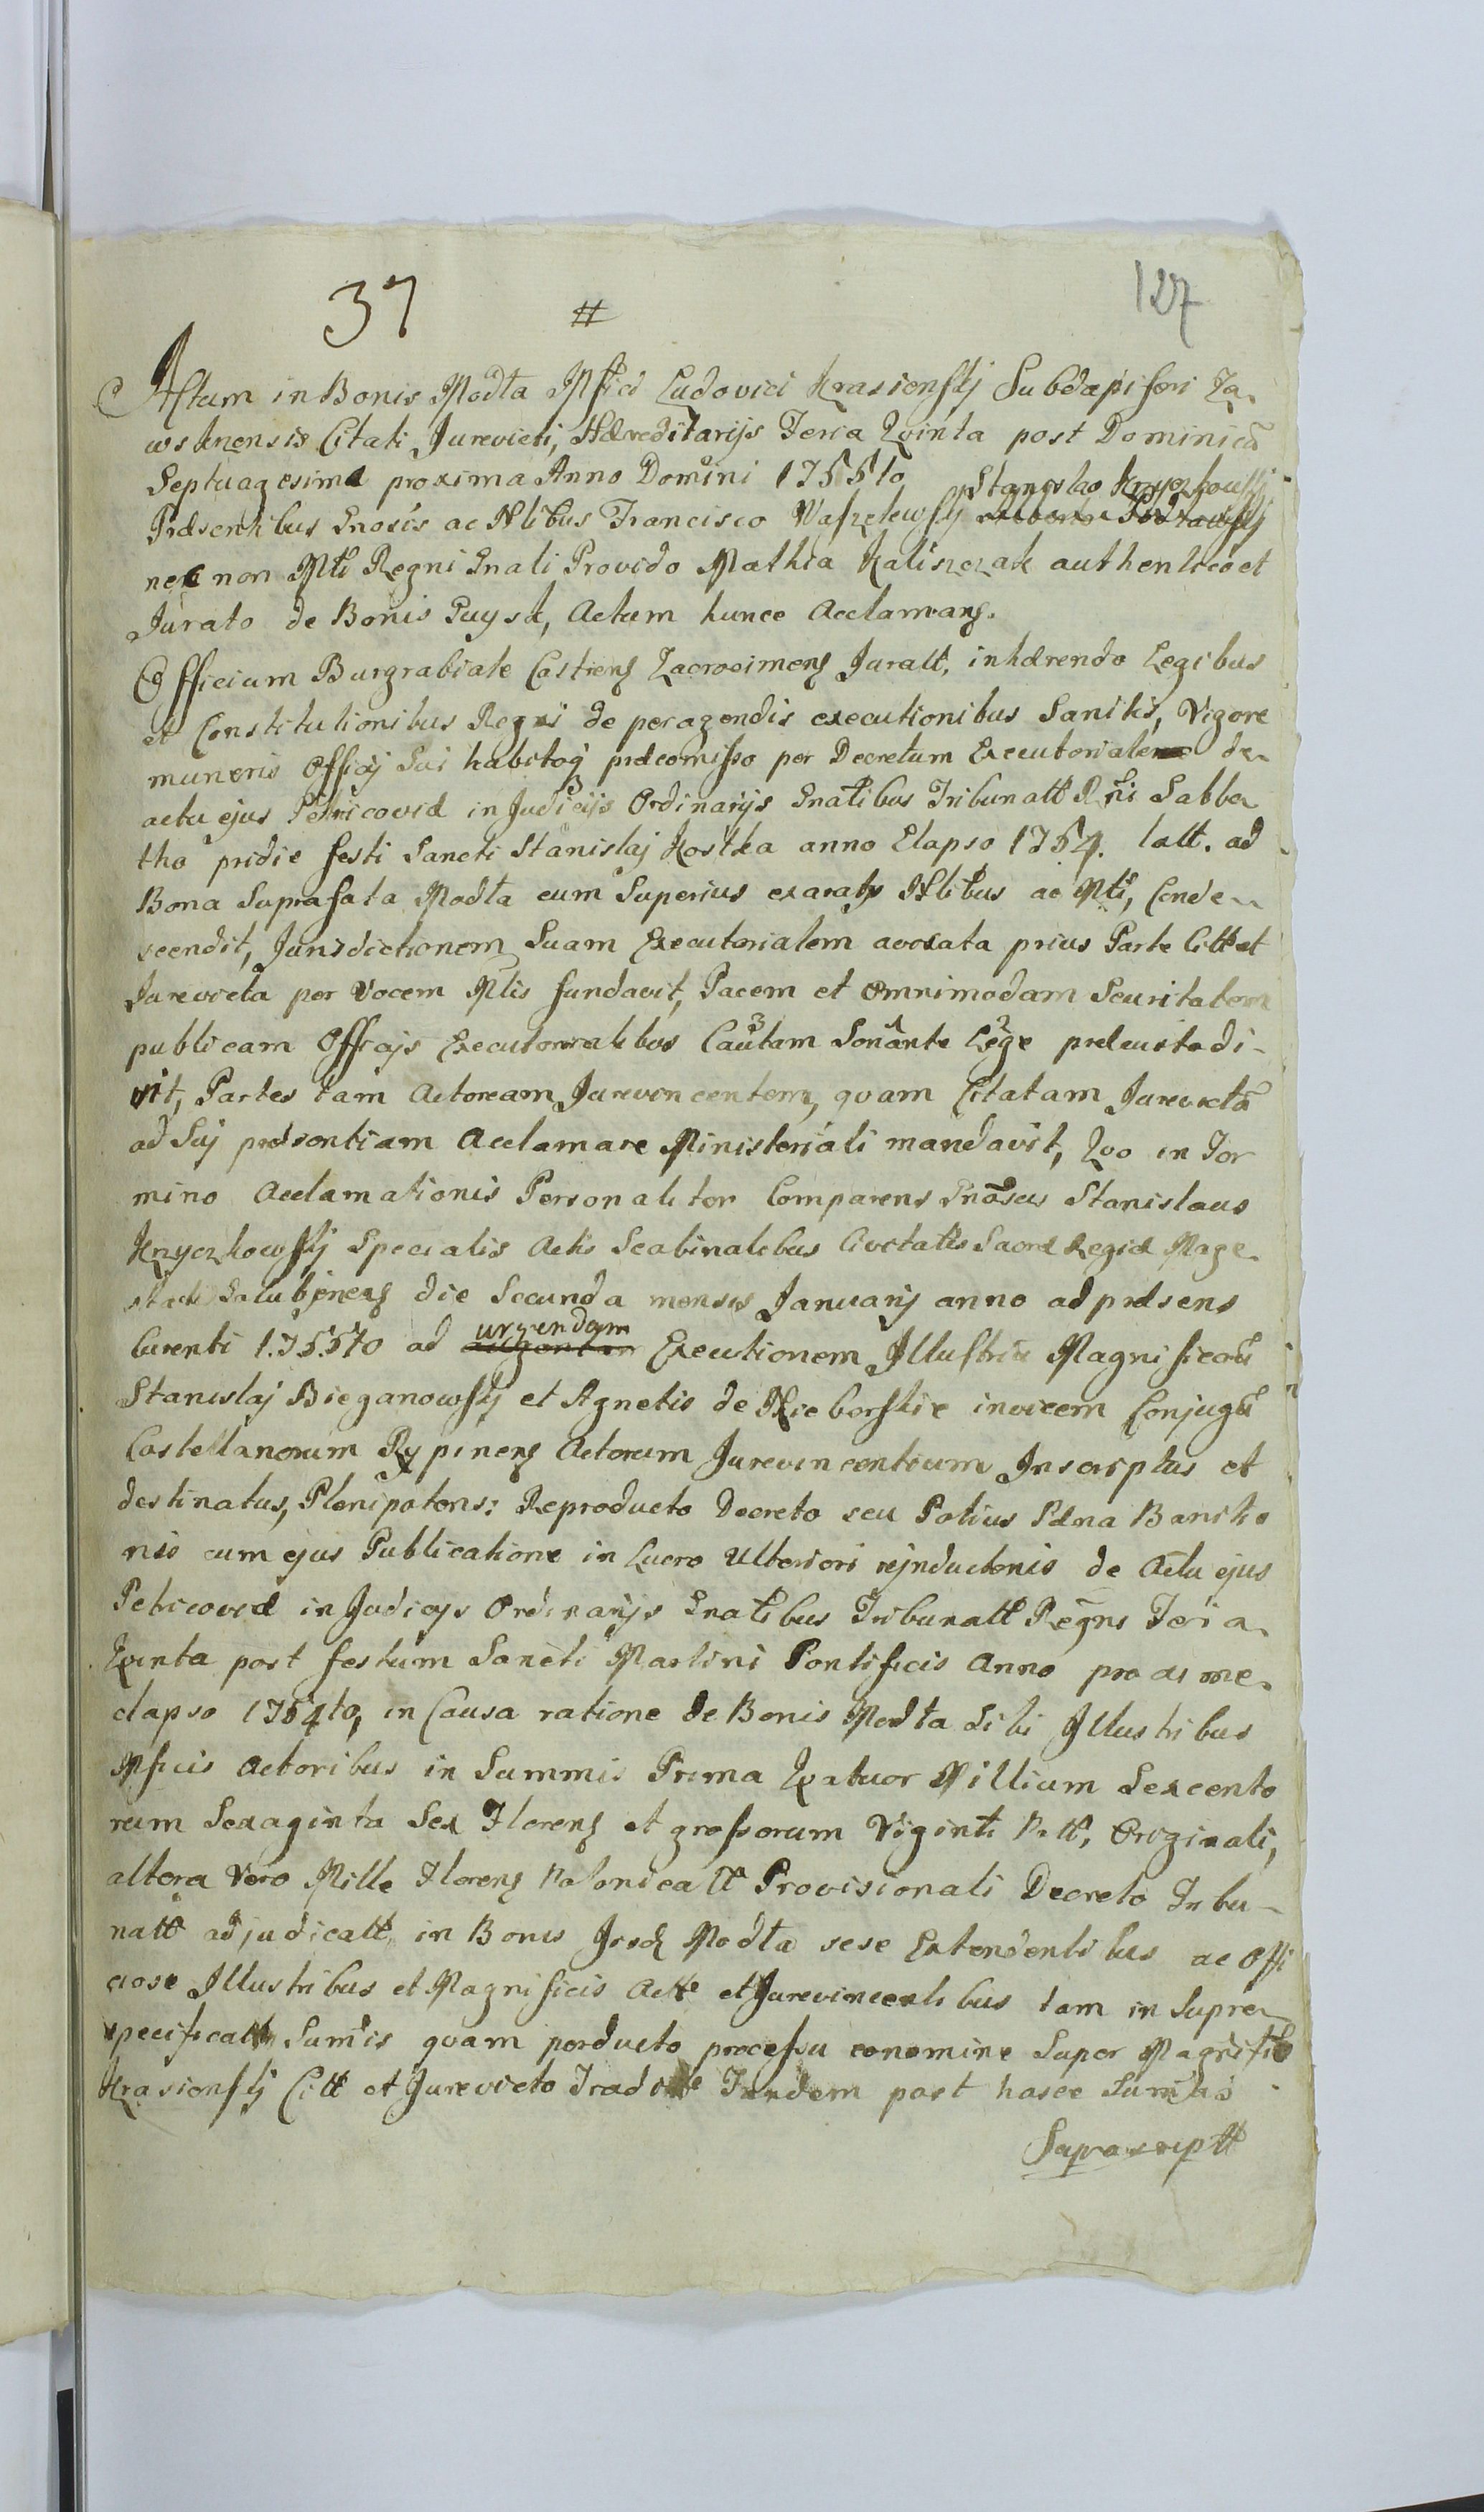 37 # 127
Actum in Bonis Modła Mfici Ludovici Krasienskj Subdapiferi Za
wsknensis Citati Jurevicti, Hæreditarijs Feria Qvinta post Dominicã
Septuagesimæ proxima Anno Domini 1755to Stanislao Knyczkowskj
Præsentibus Gnosis ac Nlibus Francisco Waszelewskj
nec non Mtli Regni Gnali Provido Mathia Kaliszczak authentico et
Jurato de Bonis Puysk, Actum hunce Acclamang.
Officium Burgrabiale Castreng Zacrocimeng Juratt. inhærendo Legibus
et Constitutionibus Regni de peragendis executionibus Sanitis, Vigore
muneris Officij Sui habitoq præcomisso per Decretum Executoriale de
actu ejus Petricoviæ in Judicijs Ordinarijs Gnalibus Tribunatt Rgni Sabba
tho pridie festi Sancti Stanislaj Kostka anno Elapso 1754. latt. ad
Bona Suprafata Modła cum Superius exaratis Nlibus ac Mtli, Conde
scendit, Jurisdictionem Suam Executorialem avocata prius Parte Citt et
Jurevicta per Vocem Mtlis fundavit, Pacem et Omnimodam Securitatem
publicam Officijs Executorialibus Cautam Sonante Lege præcustodi-
vit, Partes tam Actoream Jurevincentem, quam Citatam Jurevictã
ad Suj præsentiam Acclamare Ministeriali mandavit, Qvo in Ter
mino Acclamationis Personaliter Comparens Gnosus Stanislaus
Knyczkowskj Specialis Actis Scabinalibus Civitatis Sacræ Regiæ Maje
statis Dalubineng die Secunda mensis Januarij anno ad præsens
Curenti 1.755to ad urgendam Executionem Illustriũ Magnificorũ
Stanislaj Bieganowskj et Agnetis de Nieborskie invicem Conjugũ
Castellanorum Rypineng Actorum Jurevincentium Inscriptus et
destinatus, Plenipotens: Reproducto Decreto seu Potius Pæna Banitio
nis cum ejus Publicatione in Lucro Ulteriori rejnductionis de Actu ejus
Petricoviæ in Judicijs Ordinarijs Gnalibus Tribunatt Regni Feria
Qvinta post festum Sancti Martini Pontificis Anno proxime
elapso 1754to, in Causa ratione de Bonis Modła Sibi Illustribus
Mficis Actoribus in Summis Prima Qvatuor Millium Sexcento
rum Sexaginta Sex Floreng et grossorum Viginti Pltt, Originali,
altera Vero Mille Floreng Polonicatt Provisionali Decreto Tribu-
natt adjudicatt, in Bonis Modła sese Extendentibus ac Offi
ciose Illustribus et Magnificis Actt et Jurevincentibus tam in Supra
specificatis Sumis quam perducto processu eonomine Super Magnifico
Krasienskj Citt et Jurevicto Tradit Tandem post hasce Sumas
Suprascriptt